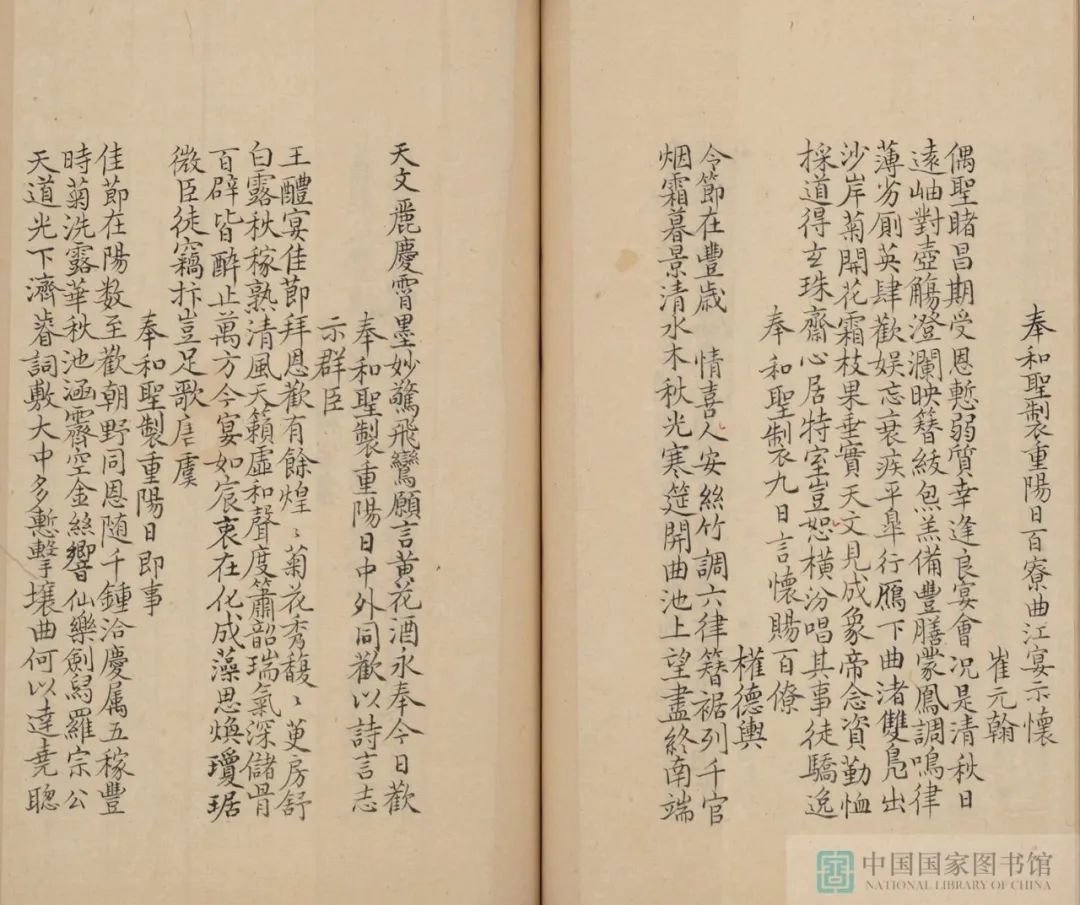 奉和聖製重陽日百寮曲江宴示懷
崔元翰
偶聖睹昌期受恩慙弱質幸逢良宴會况是清秋日
遠岫對壺觴澄瀾映簪紱炰羔備豐膳蒙鳳調鳴律
薄劣厠英肆歡娱忘衰疾平皐行鴈下曲渚雙鳧出
沙岸菊開花霜枝果垂實天文見成象帝念資勤恤
採道得玄珠齋心居特室豈恕橫汾唱其事徒驕逸
奉和聖製九日言懷賜百僚
權德輿
令節在豐歲 情喜人安絲竹調六律簪裾列千官
烟霜暮景清水木秋光寒筵開曲池上望盡終南端
天文麗慶霄墨妙驚飛鸞願言黄花酒永奉今日歡
奉和聖製重陽日中外同歡以詩言志
示群臣
王醴宴佳節拜恩歡有餘煌〻菊花秀馥〻萸房舒
白露秋稼熟清風天籟虛和聲度簫韶瑞氣深儲胥
百辟皆醉止萬方今宴如宸衷在化成藻思煥瓊琚
微臣徒竊抃豈足歌唐虞
奉和聖製重陽日即事
佳節在陽数至歡朝野同恩随千鍾洽慶属五稼豐
時菊洗露華秋池涵霽空金絲響仙樂劍舄羅宗公
天道光下濟睿詞敷大中多慙擊壤曲何以達堯聰
中国国家图书馆
NATIONAL LIBRARY OF CHINA